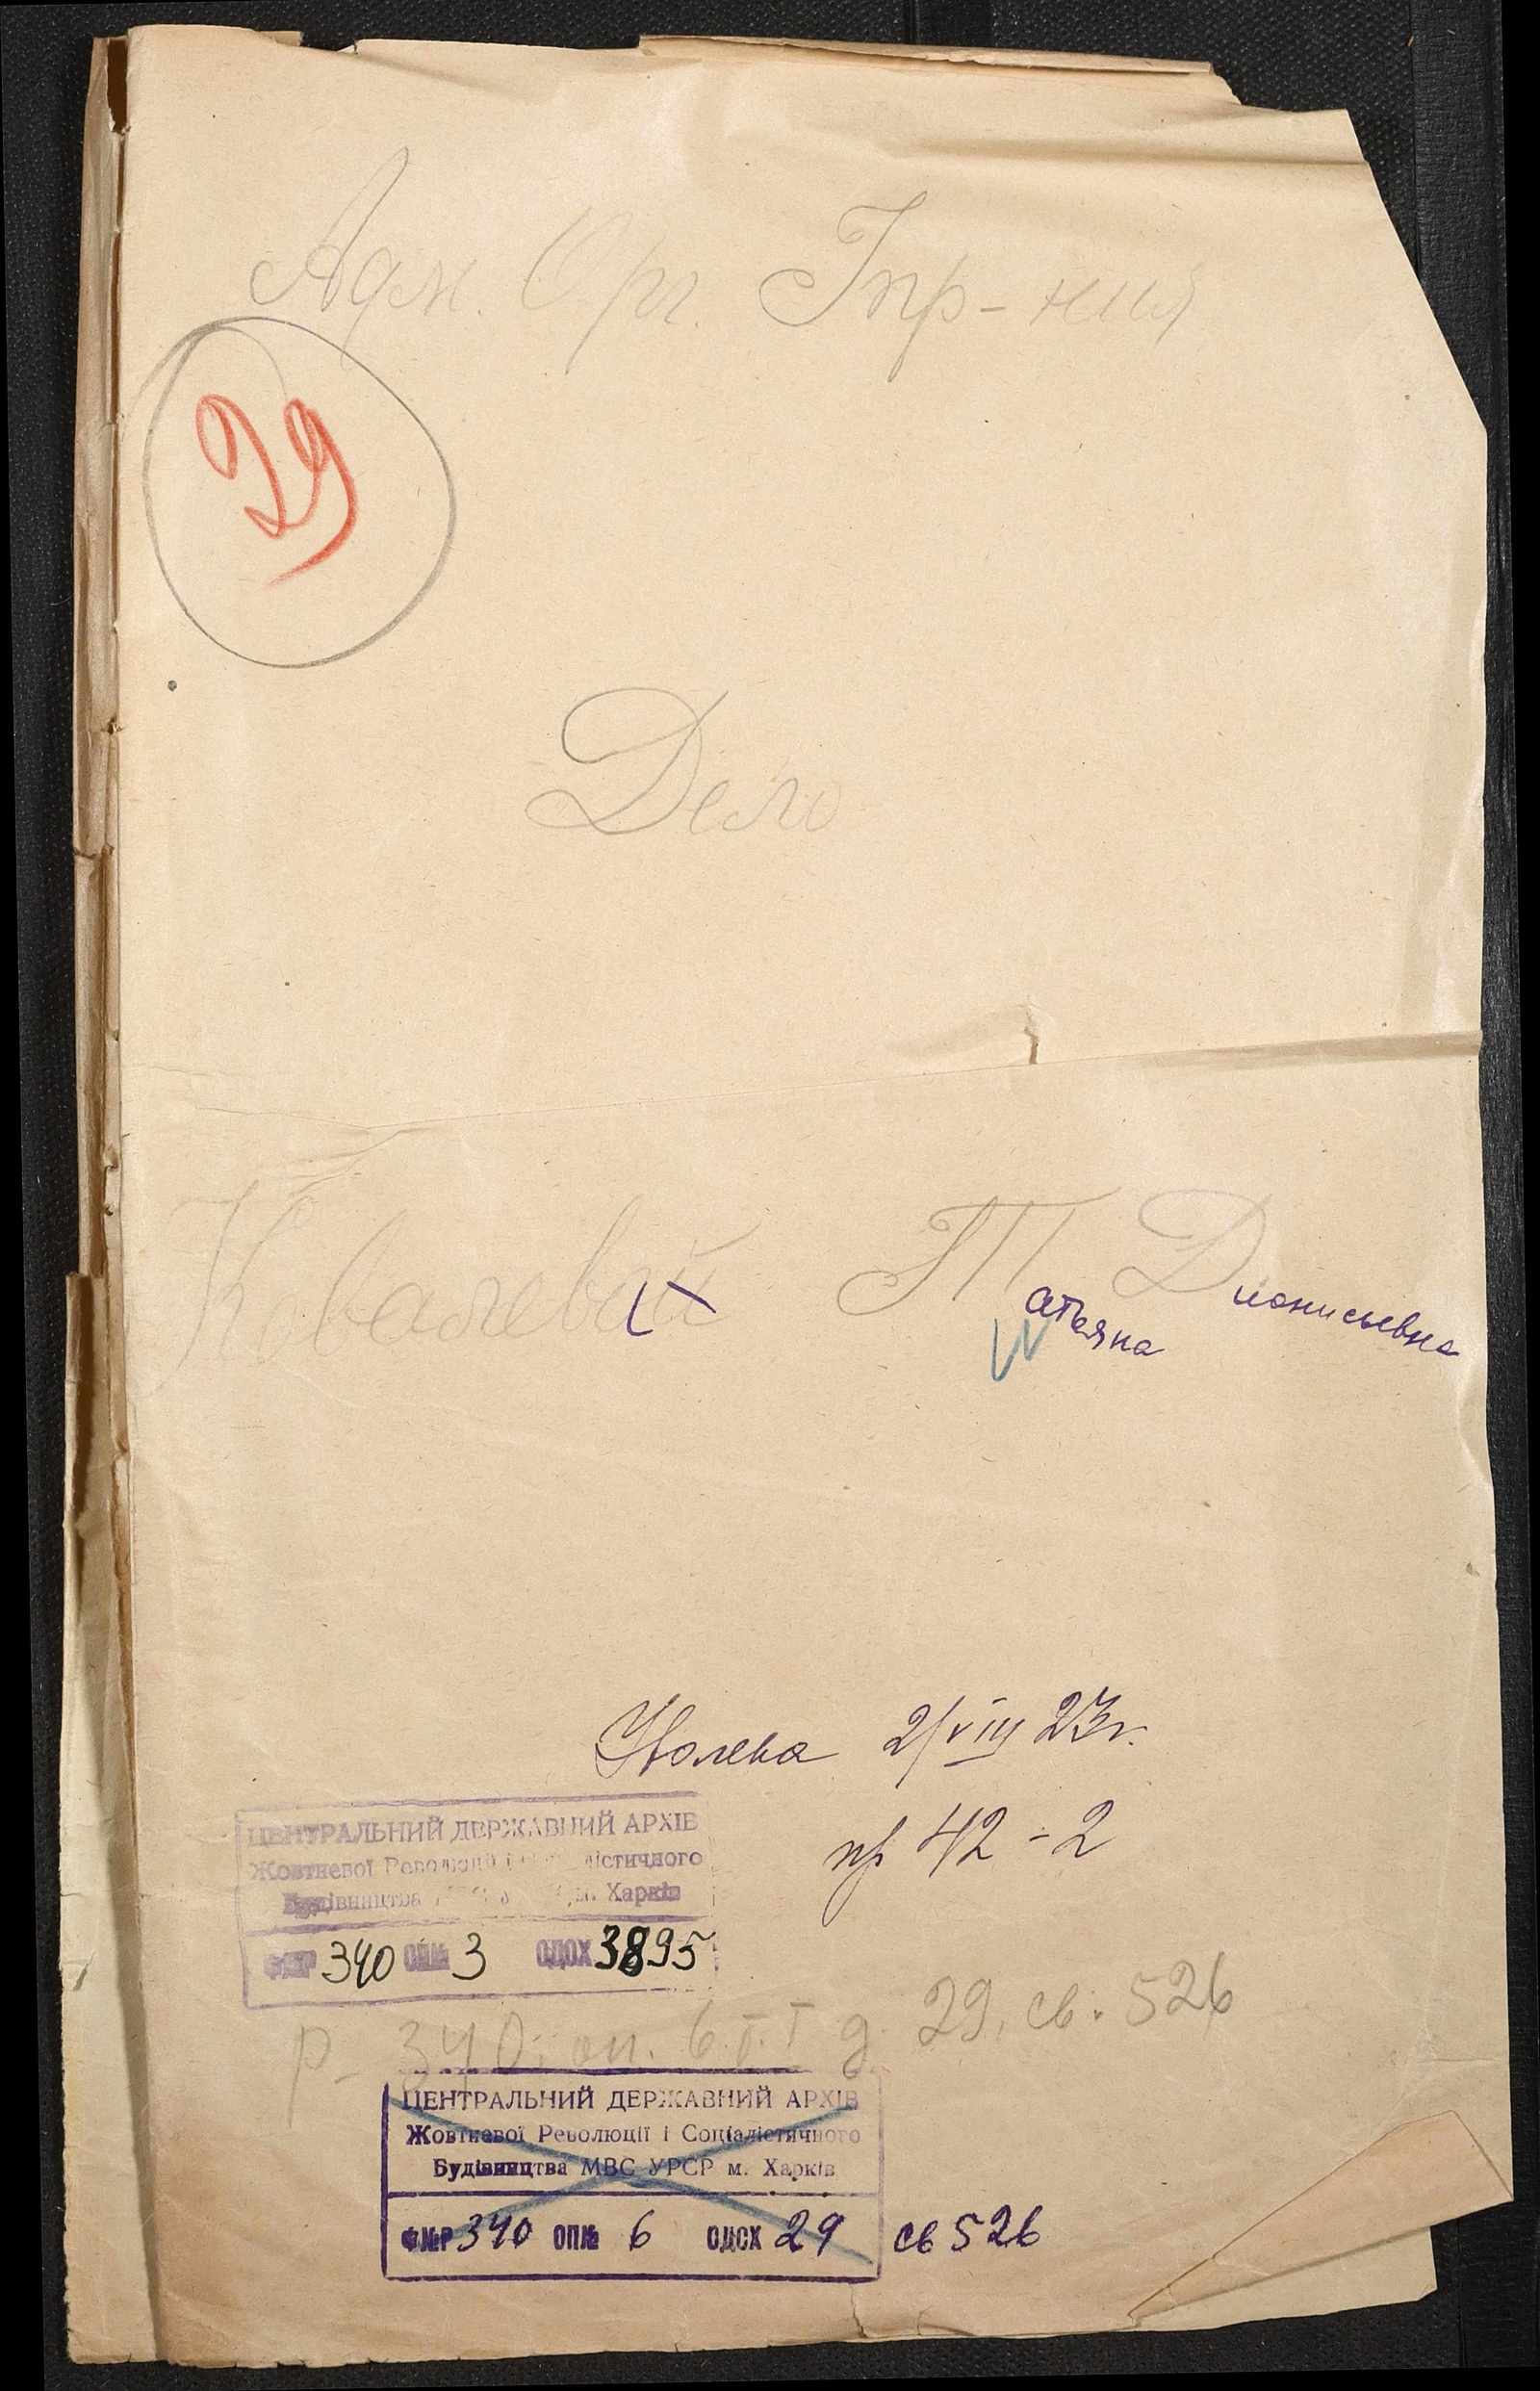 Адм. Орг. Упр-ния
29
Дело
Ковалевой Татьяна Дионисьевна
Уволена 2/VIII 23г.
пр 42-2
ЦЕНТРАЛЬНИЙ ДЕРЖАВНИЙ АРХІВ
Жовтневої Революції і істичного
Будівництва м. Харків
Ф№Р 340 ОП№ 3 ОДСХ 3895
Р-340; оп. 6. т. I д. 29, св. 526
ЦЕНТРАЛЬНИЙ ДЕРЖАВНИЙ АРХІВ
Жовтневої Революції і Соціалістичного
Будівництва МВС УРСР м. Харків
Ф№Р 340 ОП№ 6 ОДСХ 29 св 526